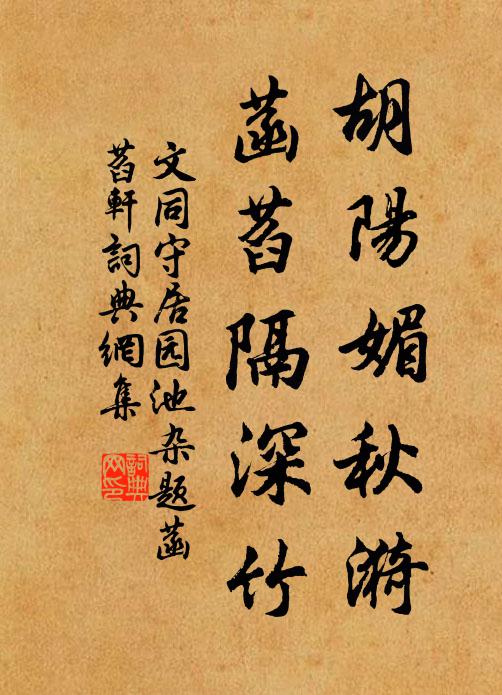 胡陽媚秋漪
菡萏隔深竹
文同守居园池杂题菡
萏軒詞典網集
詞典
网印